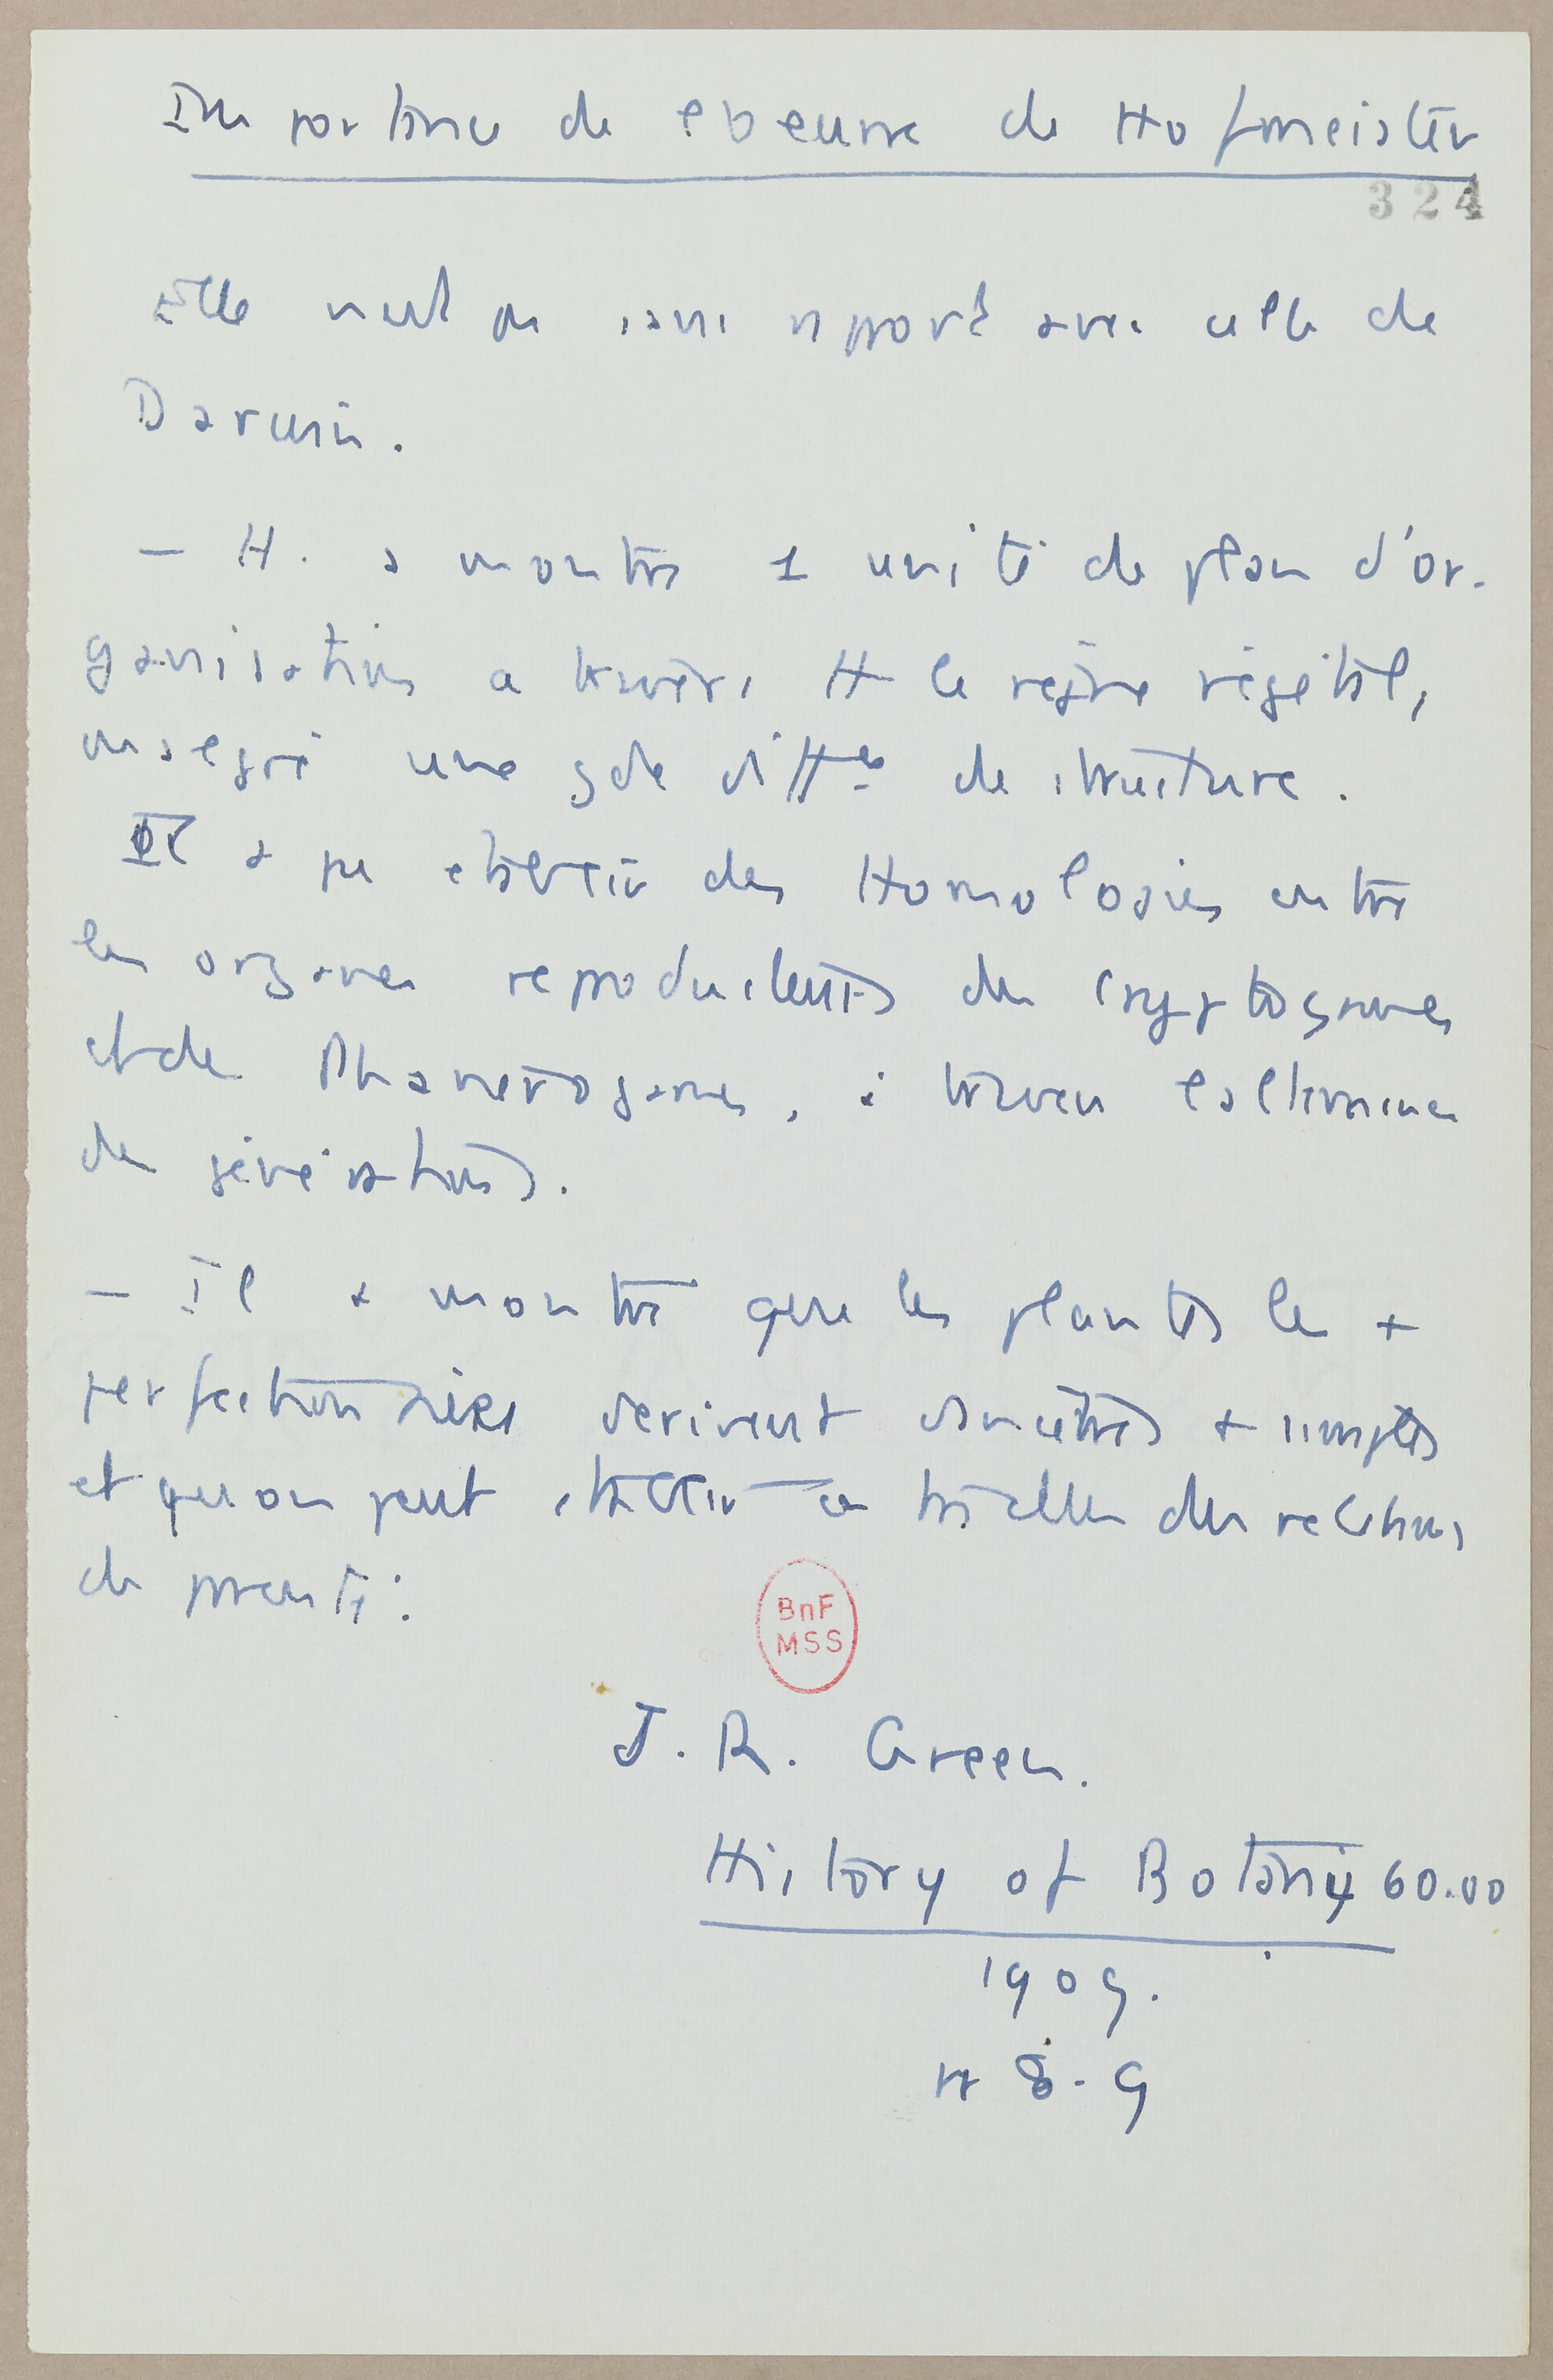 Importance de l'oeuvre de Hofmeister
324
Elle n'est pas sans rapport avec celle de
Darwin.
— H. a montré 1 unité de plan d'or-
ganisation a travers tt le règne végétal,
malgré une gde diffce de structure.
Il a pu établir des Homologies entre
les organes reproducteurs des Cryptogames
et des Phanerogames, à travers l'alternance
des générations.
— Il a montré que les plantes les +
perfectionnées dérivent d'ancêtres + simples
et qu'on peut établir entre elles des relations
de parenté.
BnF
MSS
J. R. Green.
History of Botany 60.00
1909.
p 8-9